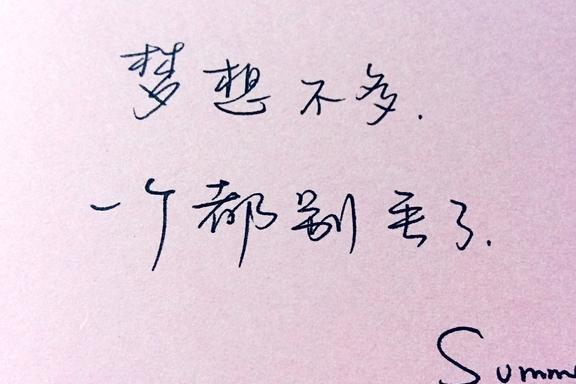 梦想不多.
一个都别丢了.
Summ